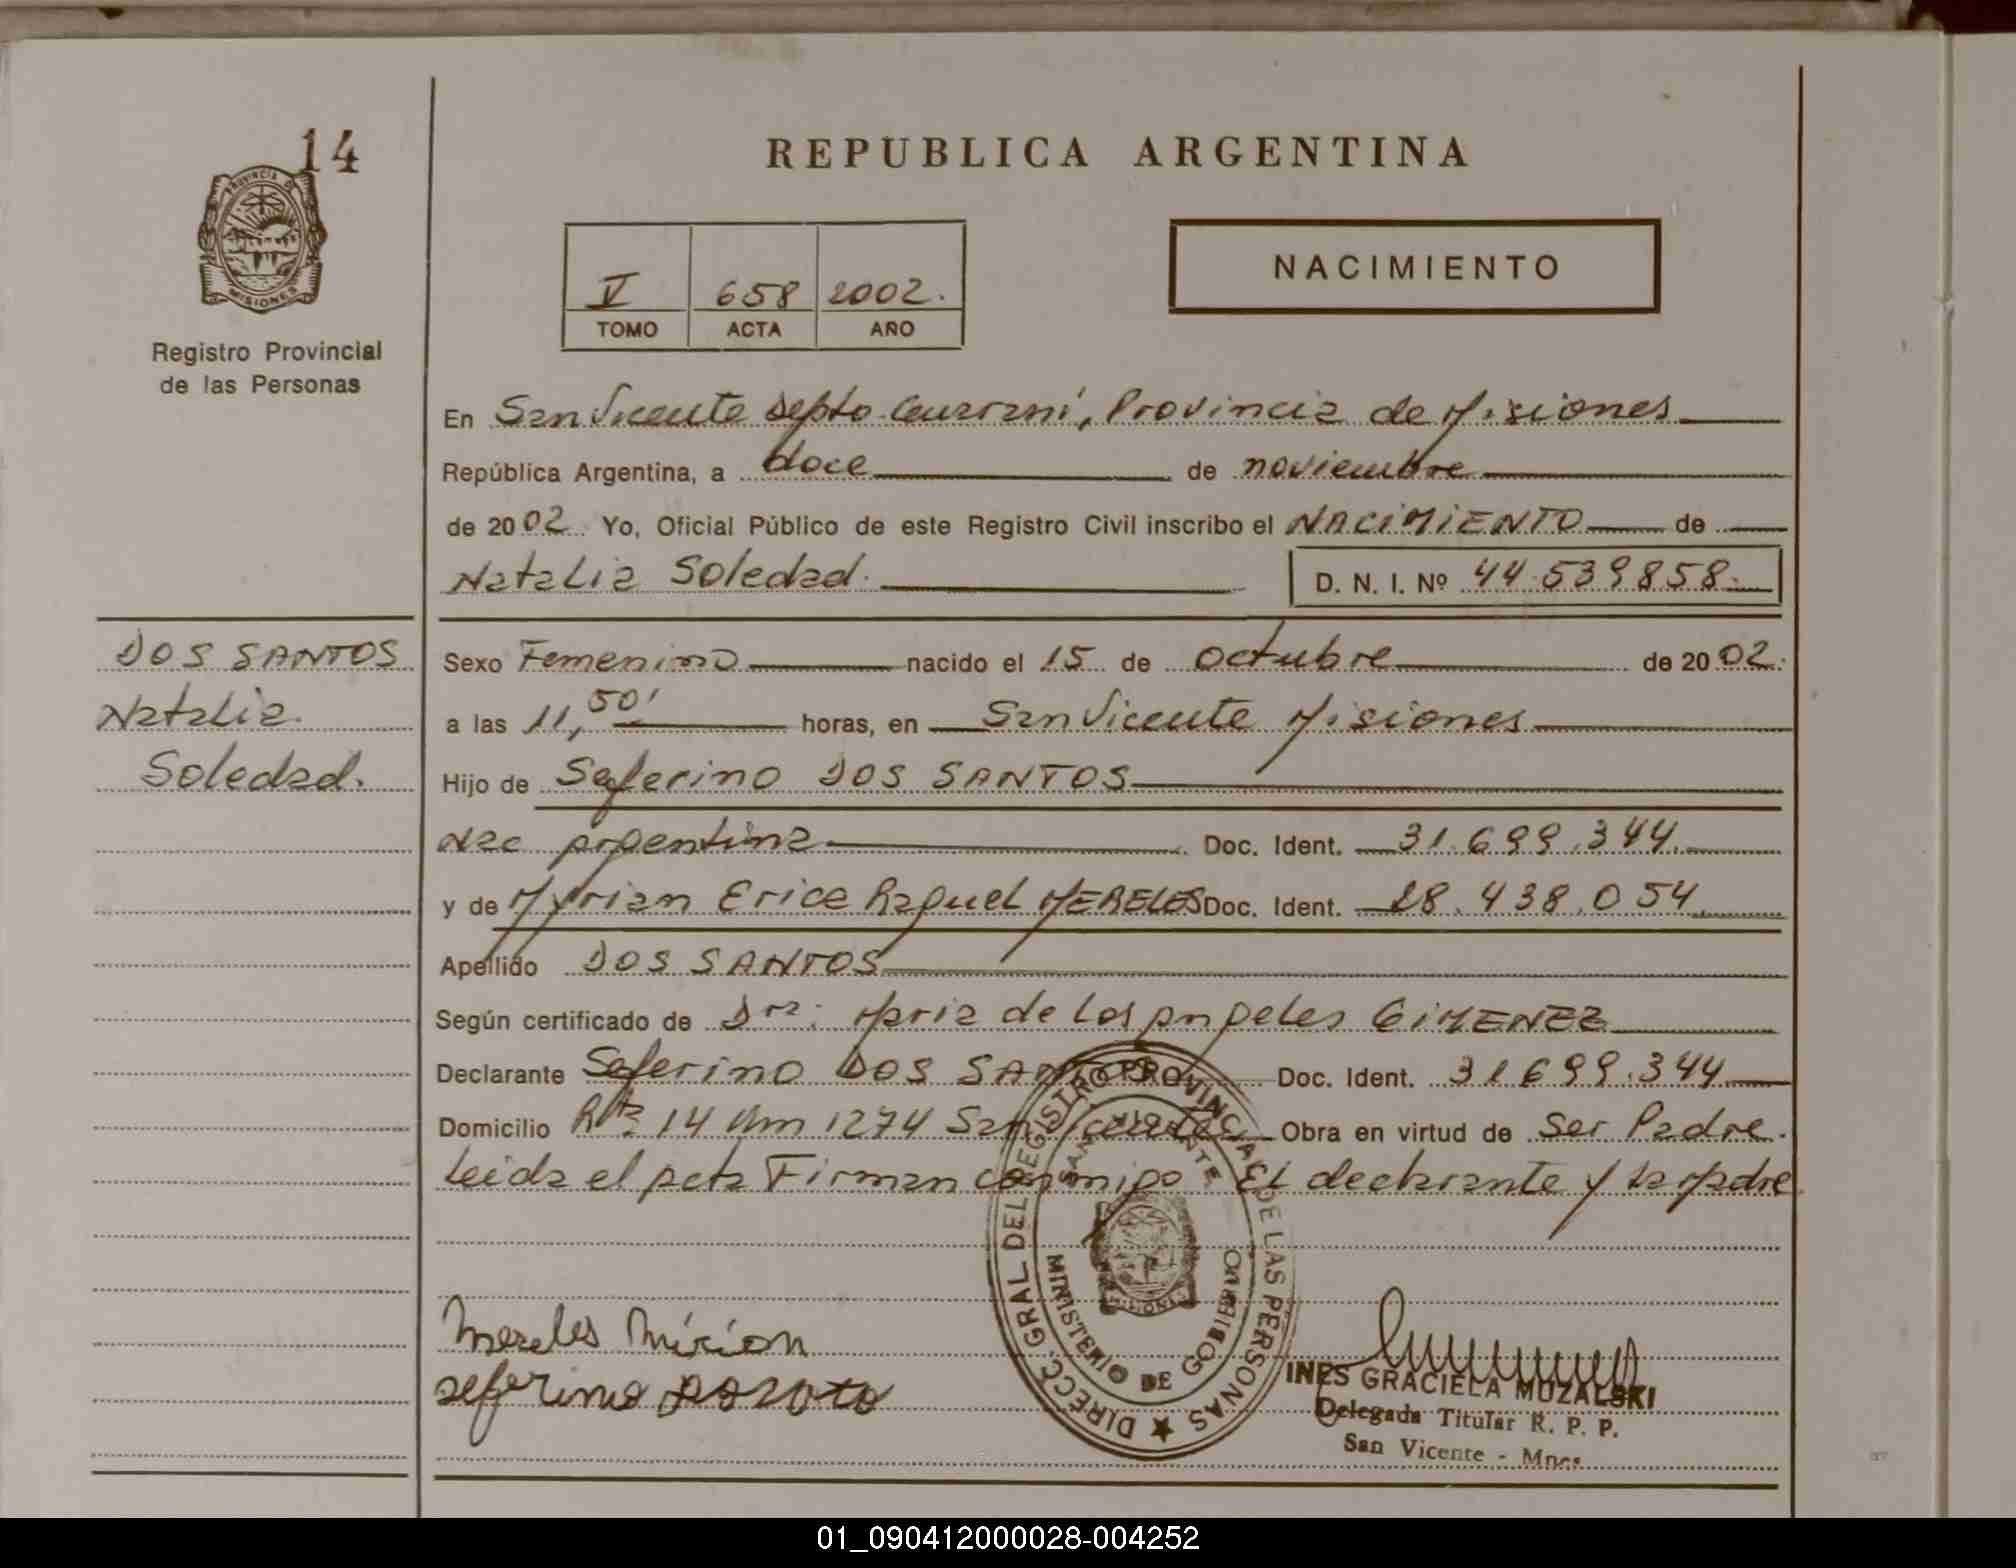 14
PROVINCIA DE
MISIONES
Registro Provincial
de las Personas
REPUBLICA ARGENTINA
V 658 2002.
TOMO ACTA AÑO
NACIMIENTO
En San Vicente Depto. Guaraní, Provincia de Misiones
República Argentina, a doce de noviembre
de 2002 Yo, Oficial Público de este Registro Civil inscribo el NACIMIENTO de
Natalia Soledad. D. N. I. Nº 44.539.858.
DOS SANTOS
Natalia
Soledad.
Sexo Femenino nacido el 15 de octubre de 2002.
a las 11,50' horas, en San Vicente Misiones
Hijo de Seferino DOS SANTOS
Nac Argentina Doc. Ident. 31.699.344.
y de Myrian Erice Raquel MERELES Doc. Ident. 28.438.054
Apellido DOS SANTOS
Según certificado de Dra: Maria de Los Angeles GIMENEZ
Declarante Seferino DOS SANTOS Doc. Ident. 31699.344
Domicilio Rta 14 Km 1274 San Vicente Obra en virtud de Ser Padre.
Leida el Acta Firman conmigo El declarante y la Madre
DIRECC. GRAL DEL REGISTRO PROVINCIAL DE LAS PERSONAS
SAN VICENTE
MISIONES
MINISTERIO DE GOBIERNO
Mereles Mirian
seferino
INES GRACIELA MUZALSKI
Delegada Titular R. P. P.
San Vicente - Mnes
01_090412000028-004252